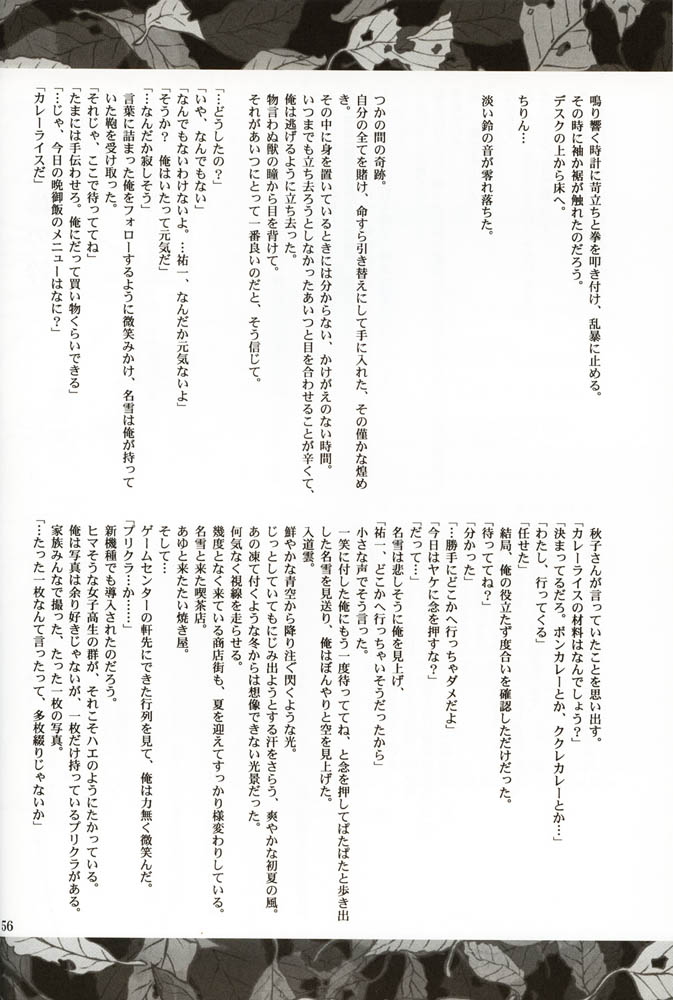 鳴り響く時計に苛立ちと拳を叩き付け、乱暴に止める。
その時に袖か裾が触れたのだろう。
デスクの上から床へ。
ちりん…
淡い鈴の音が零れ落ちた。
つかの間の奇跡。
自分の全てを賭け、命すら引き替えにして手に入れた、その僅かな煌め
き。
その中に身を置いているときには分からない、かけがえのない時間。
いつまでも立ち去ろうとしなかったあいつと目を合わせることが辛くて、
俺は逃げるように立ち去った。
物言わぬ獣の瞳から目を背けて。
それがあいつにとって一番良いのだと、そう信じて。
「…どうしたの?」
「いや、なんでもない」
「なんでもないわけないよ。…祐一、なんだか元気ないよ」
「そうか? 俺はいたって元気だ」
「…なんだか寂しそう」
言葉に詰まった俺をフォローするように微笑みかけ、名雪は俺が持って
いた鞄を受け取った。
「それじゃ、ここで待っててね」
「たまには手伝わせろ。俺にだって買い物くらいできる」
「…じゃ、今日の晩御飯のメニューはなに?」
「カレーライスだ」
秋子さんが言っていたことを思い出す。
「カレーライスの材料はなんでしょう?」
「決まってるだろ。ボンカレーとか、ククレカレーとか…」
「わたし、行ってくる」
「任せた」
結局、俺の役立たず度合いを確認しただけだった。
「待っててね?」
「分かった」
「…勝手にどこかへ行っちゃダメだよ」
「今日はヤケに念を押すな?」
「だって…」
名雪は悲しそうに俺を見上げ、
「祐一、どこかへ行っちゃいそうだったから」
小さな声でそう言う。
一笑に付した俺にもう一度待っててね、と念を押してぱたぱたと歩き出
した名雪を見送り、俺はぼんやりと空を見上げた。
入道雲。
鮮やかな青空から降り注ぐ閃くような光。
じっとしていてもにじみ出ようとする汗をさらう、爽やかな初夏の風。
あの凍て付くような冬からは想像できない光景だった。
何気なく視線を走らせる。
幾度となく来ている商店街も、夏を迎えてすっかり様変わりしている。
名雪と来た喫茶店。
あゆと来たたい焼き屋。
そして…
ゲームセンターの軒先にできた行列を見て、俺は力無く微笑んだ。
「プリクラ…か……」
新機種でも導入されたのだろう。
ヒマそうな女子高生の群が、それこそハエのようにたかっている。
俺は写真は余り好きじゃないが、一枚だけ持っているプリクラがある。
家族みんなで撮った、たった一枚の写真。
「…たった一枚なんて言ったって、多枚綴りじゃないか」
56